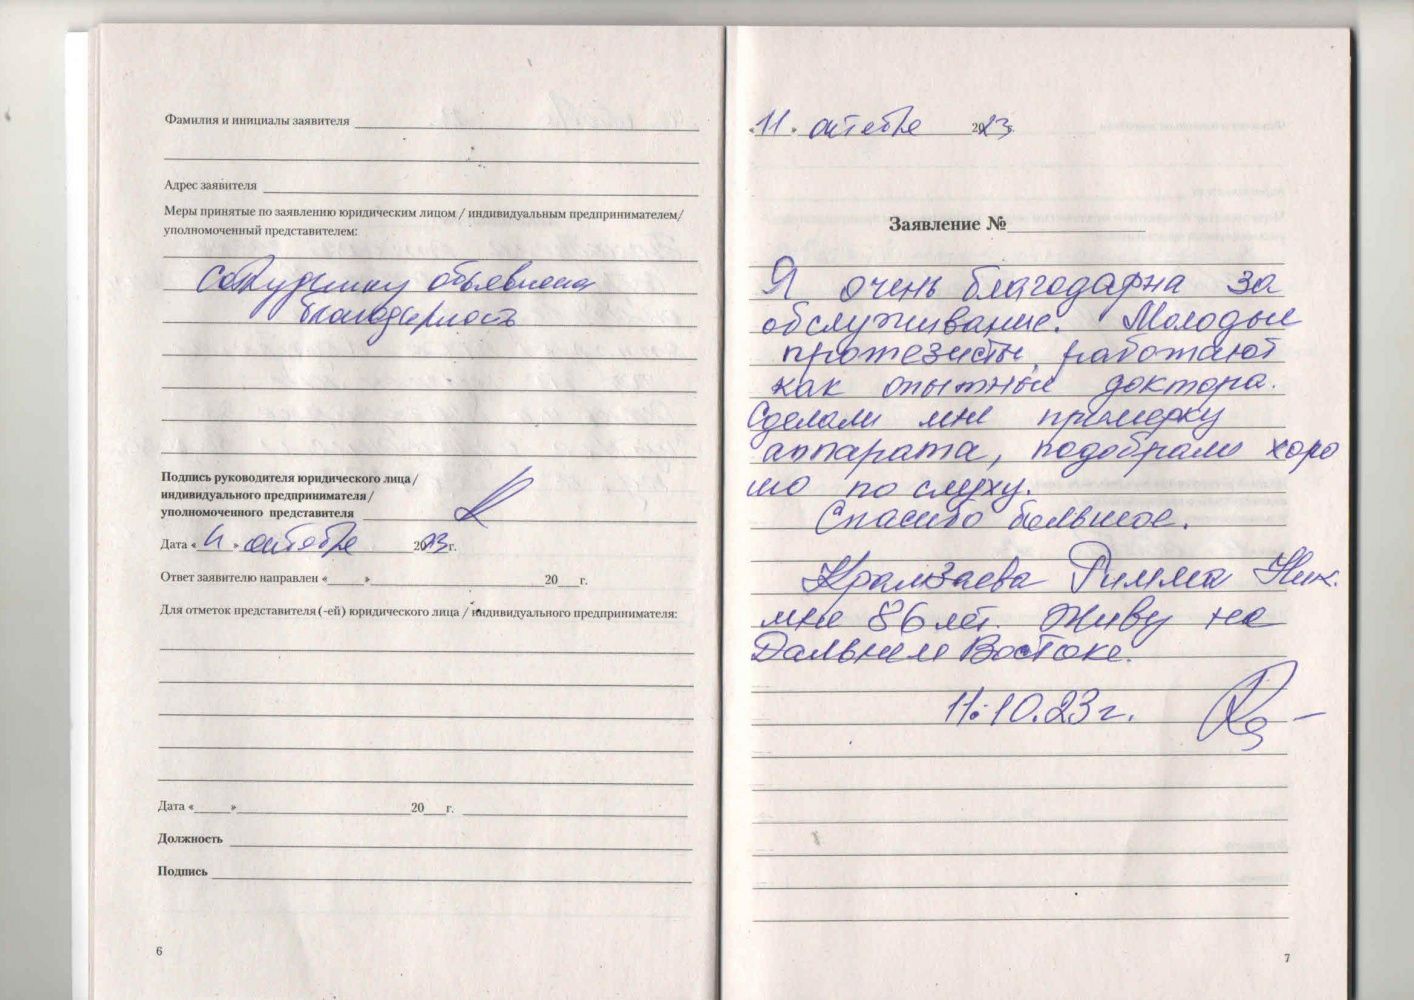 Фамилия и инициалы заявителя
Адрес заявителя
Меры принятые по заявлению юридическим лицом / индивидуальным предпринимателем/
уполномоченный представителем:
Сотруднику объявлена
благодарность
Подпись руководителя юридического лица/
индивидуального предпринимателя/
уполномоченного представителя
Дата « 11 » октября 2023 г.
Ответ заявителю направлен «____» 20___г.
Для отметок представителя (-ей) юридического лица / индивидуального предпринимателя:
Дата «____» 20___г.
Должность
Подпись
6
«11» октября 2023 г.
Заявление №
Я очень благодарна за
обслуживание. Молодые
протезисты, работают
как опытные доктора.
Сделали мне примерку
аппарата, подобрали хоро
шо по слуху.
Спасибо большое.
Крамзаева Римма Ник.
мне 86 лет. Живу на
Дальнем Востоке.
11.10.23 г.
7